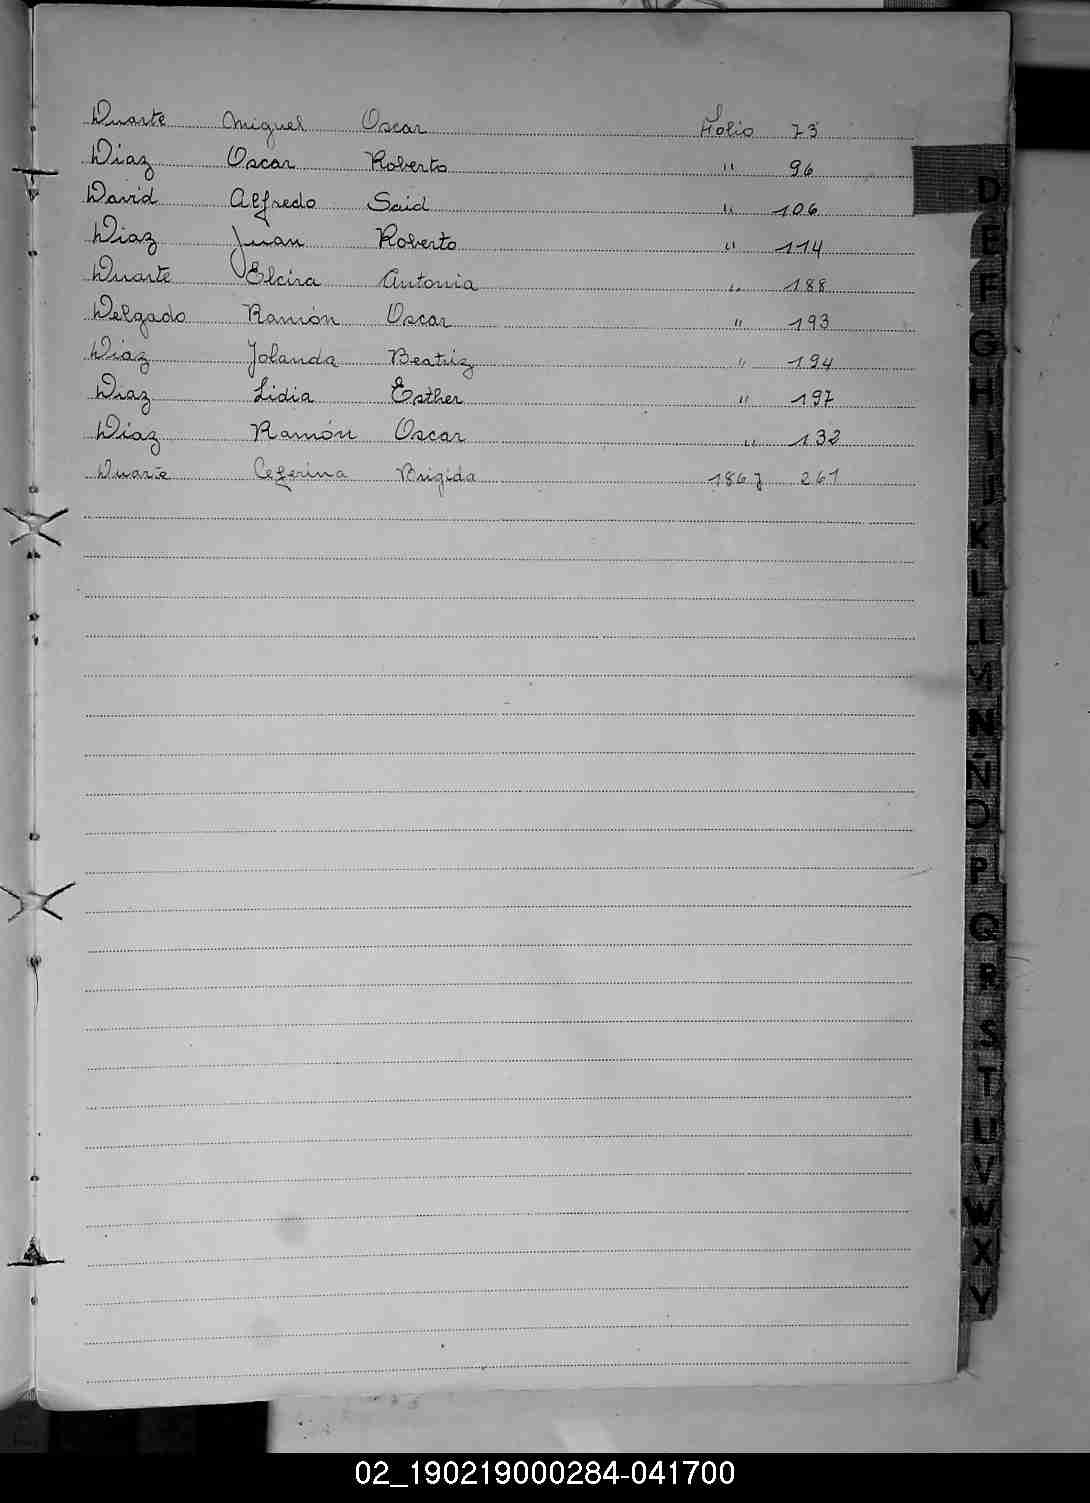 Duarte Miguel Oscar Folio 73
Diaz Oscar Roberto " 96
David Alfredo Said " 106
Diaz Juan Roberto " 114
Duarte Elcira Antonia " 188
Delgado Ramón Oscar " 193
Diaz Jolanda Beatriz " 194
Diaz Lidia Esther " 197
Diaz Ramón Oscar " 132
Duarte Ceferina Brigida 1867 261
D
E
F
G
H
I
J
K
L
M
N
Ñ
O
P
Q
R
S
T
U
V
W
X
Y
02_190219000284-041700